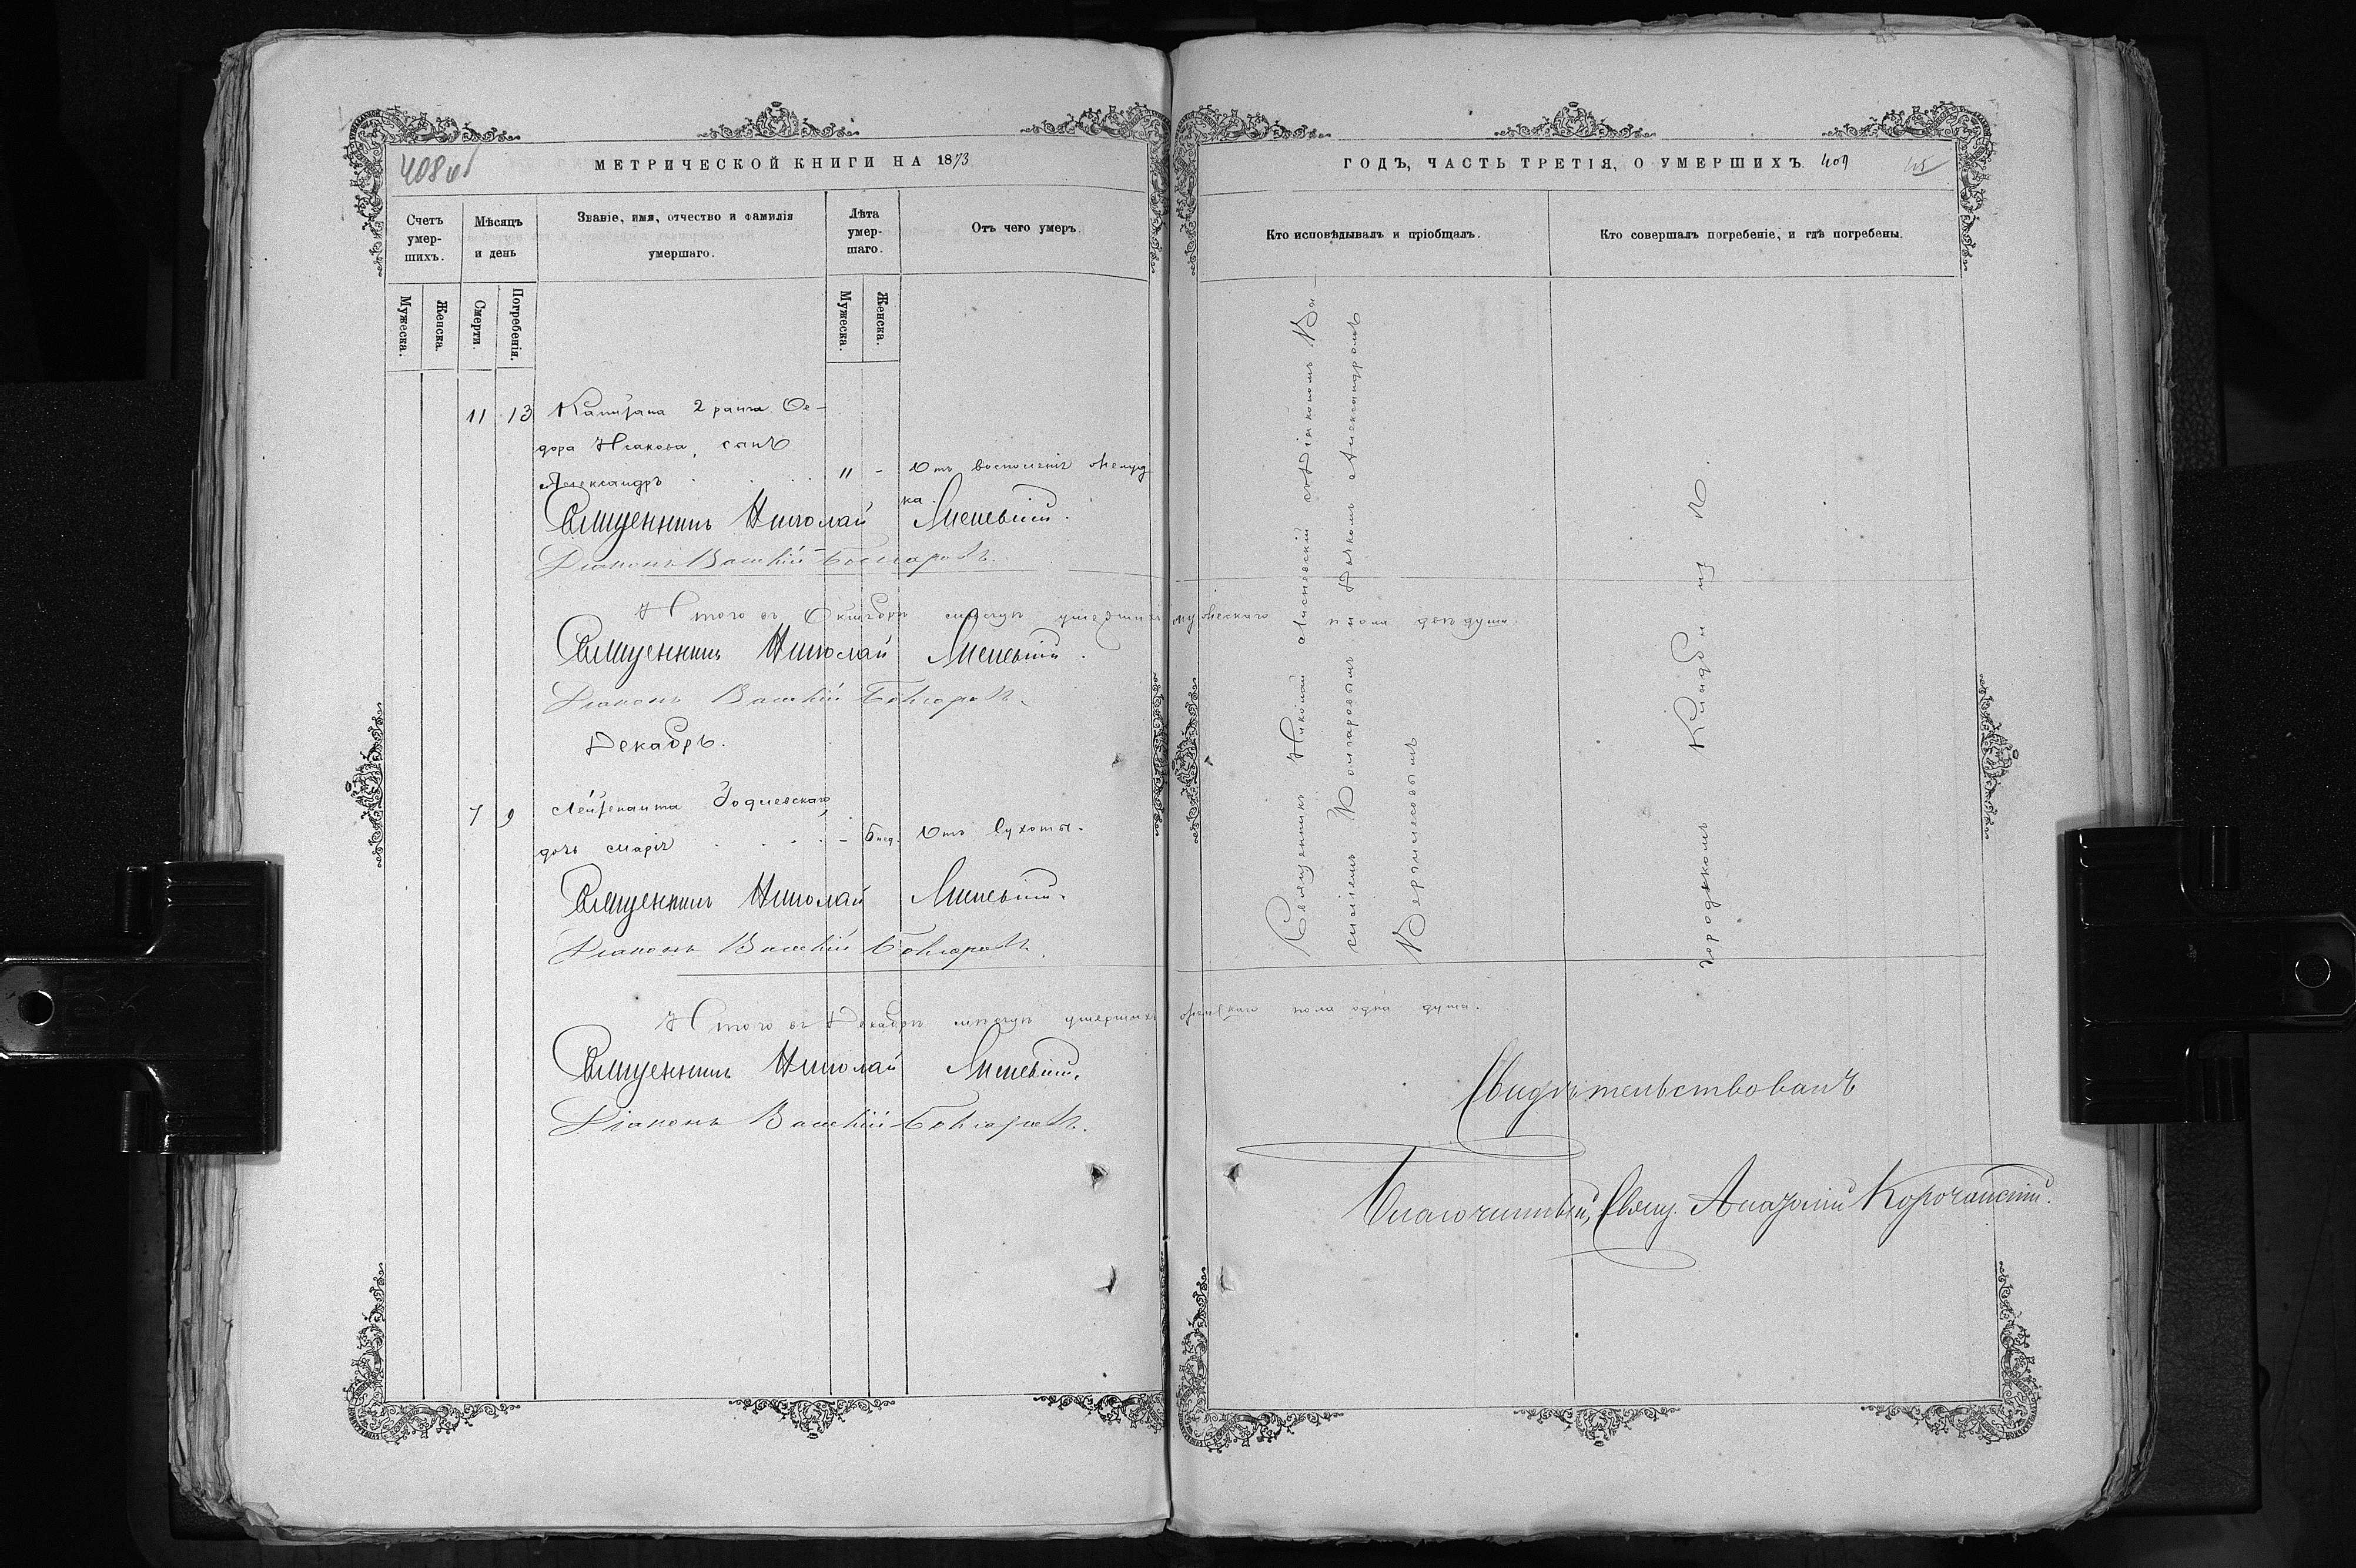 408 об
МЕТРИЧЕСКОЙ КНИГИ НА 1873
Счетъ умер-шихъ.
Мѣсяцъ и день
Званіе, имя, отчество и фамилія умершаго.
Лѣта умер-шаго.
Отъ чего умеръ.
Мужеска.
Женска.
Смерти.
Погребенія.
Мужеска.
Женска.
11 13 Капитана 2 ранга Ѳе-
дора Исакова, сынъ
Александръ 11 - Отъ воспаленія желуд
ка.
Священникъ Николай Лисневскій.
Діаконъ Василій Болгаровъ.
Итого въ Октябрѣ мѣсяцѣ умершихъ мужескаго пола двѣ души.
Священникъ Николай Лисневскій.
Діаконъ Василій Болгаровъ.
Декабрь.
7 9 Лейтенанта
дочь Марія - 6 Отъ Сухоты.
Священникъ Николай Лисневскій.
Діаконъ Василій Болгаровъ.
Итого въ Декабрѣ мѣсяцѣ умершихъ женскаго пола одна душа.
Священникъ Николай Лисневскій.
Діаконъ Василій Болгаровъ.
ГОДЪ, ЧАСТЬ ТРЕТІЯ, О УМЕРШИХЪ. 409
Кто исповѣдывалъ и пріобщалъ.
Кто совершалъ погребеніе, и гдѣ погребены.
Священникъ Николай Лисневскій съ Діакономъ Ва-
силіемъ Болгаровымъ и Дьячкомъ Александромъ
городскомъ Кладбищѣ.
Свидѣтельствовалъ
Благочинный, Свящ. Корочанскій.